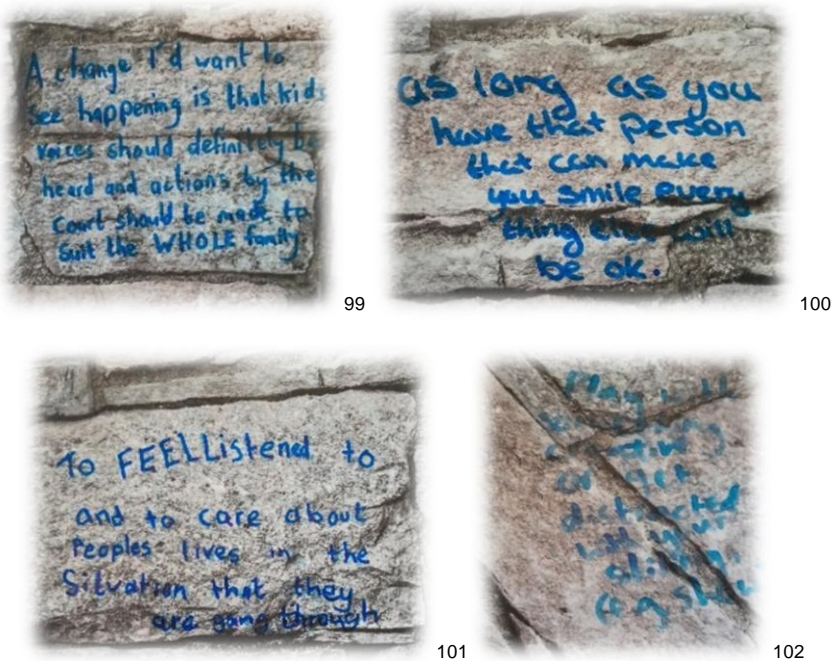 A change I'd want to
see happening is that kids
voices should definitely be
heard and actions by the
Court should be made to
suit the WHOLE family
99
as long as you
have that person
that can make
you smile every
thing else will
be ok.
100
To FEEL Listened to
and to care about
Peoples lives in the
Situation that they
are going through
101
Play with
something
creative
or get
distracted
with your
(e.g slime
102